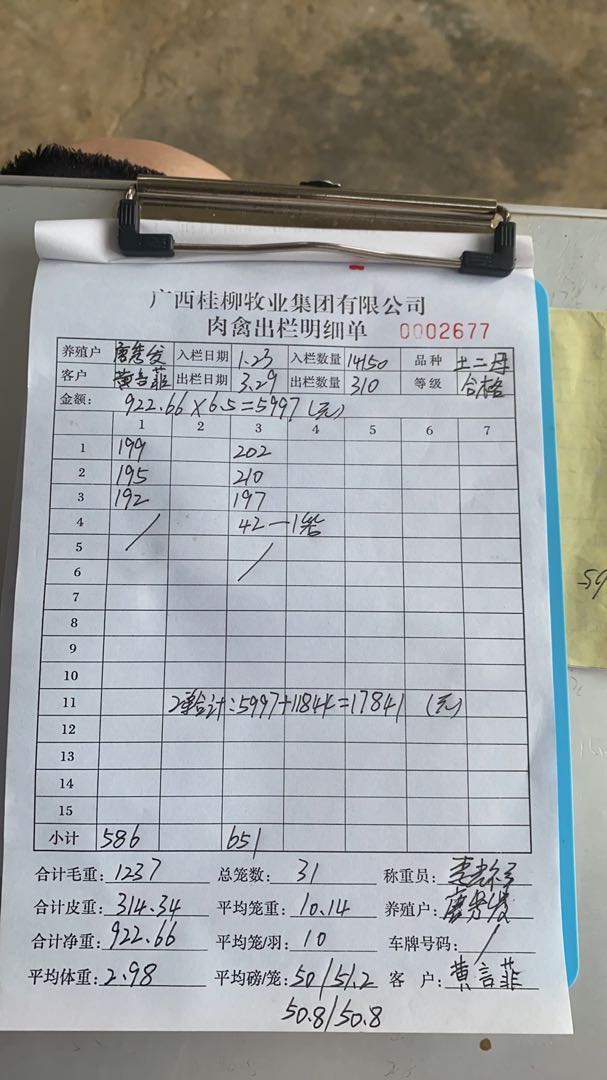 广西桂柳牧业集团有限公司
肉禽出栏明细单 0002677
养殖户 入栏日期 1.23 入栏数量 14150 品种 土二母
客户 黄言菲 出栏日期 3.29 出栏数量 310 等级 合格
金额: 922.66×6.5=5997(元)
1 2 3 4 5 6 7
1 199 202
2 195 210
3 192 197
4 / 42—1笼
5
6 /
7
8
9
10
11 2单合计:5997+11844=17841 (元)
12
13
14
15
小计 586 651
合计毛重: 1237 总笼数: 31 称重员:
合计皮重: 314.34 平均笼重: 10.14 养殖户:
合计净重: 922.66 平均笼/羽: 10 车牌号码: /
平均体重: 2.98 平均磅/笼: 50/51.2 客户: 黄言菲
50.8/50.8